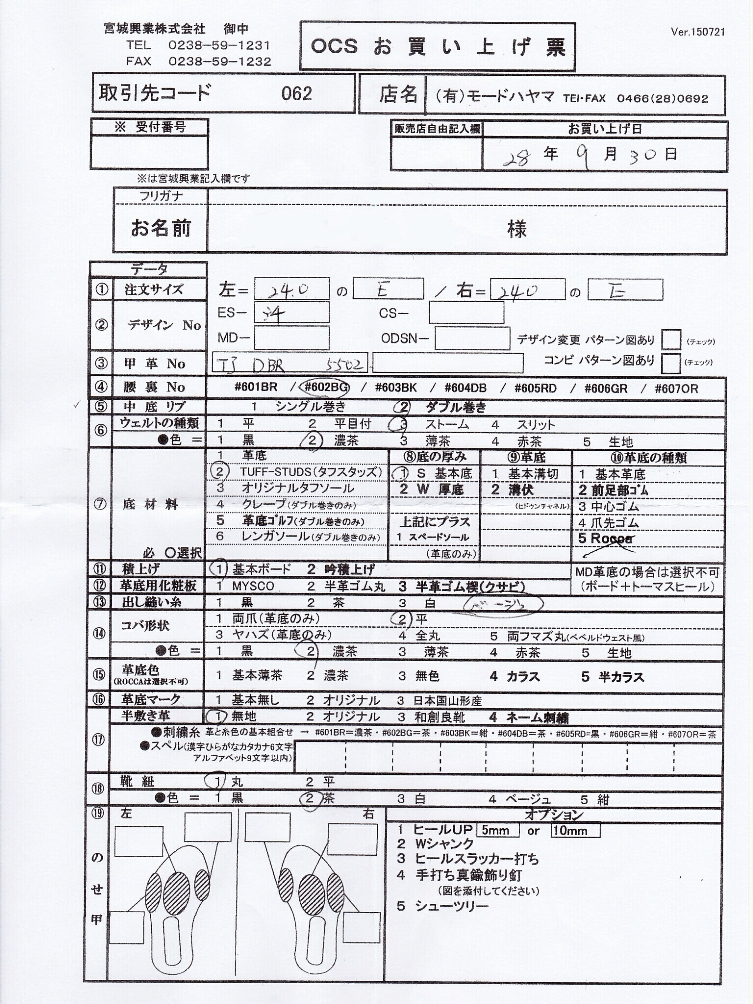 宮城興業株式会社　御中
TEL　0238-59-1231
FAX　0238-59-1232
OCS お買い上げ票
Ver.150721
取引先コード　062
店名　(有)モードハヤマ TEL・FAX 0466(28)0692
※ 受付番号
販売店自由記入欄　お買い上げ日
28 年 9 月 30 日
※は宮城興業記入欄です
フリガナ
お名前　様
データ
① 注文サイズ　左= 24.0 の E / 右= 24.0 の E
② デザイン No　ES- 34　CS-
MD-　ODSN-　デザイン変更 パターン図あり (チェック)
③ 甲 革 No　TJ DBR 5502　コンビ パターン図あり (チェック)
④ 腰 裏 No　#601BR / #602BG / #603BK / #604DB / #605RD / #606GR / #607OR
⑤ 中 底 リブ　1 シングル巻き　2 ダブル巻き
⑥ ウェルトの種類　1 平　2 平目付　3 ストーム　4 スリット
●色 = 1 黒　2 濃茶　3 薄茶　4 赤茶　5 生地
⑦ 底 材 料
必 〇選択
1 革底
2 TUFF-STUDS(タフスタッズ)
3 オリジナルタフソール
4 クレープ(ダブル巻きのみ)
5 革底ゴルフ(ダブル巻きのみ)
6 レンガソール(ダブル巻きのみ)
⑧底の厚み
1 S 基本底
2 W 厚底
上記にプラス
1 スペードソール
(革底のみ)
⑨革底
1 基本溝切
2 溝伏
(ヒドゥンチャネル)
⑩革底の種類
1 基本革底
2 前足部ゴム
3 中心ゴム
4 爪先ゴム
5 Rocca
⑪ 積上げ　1 基本ボード　2 吟積上げ
MD革底の場合は選択不可
(ボード+トーマスヒール)
⑫ 革底用化粧板　1 MYSCO　2 半革ゴム丸　3 半革ゴム楔(クサビ)
⑬ 出し縫い糸　1 黒　2 茶　3 白　ベージュ
⑭ コバ形状　1 両爪(革底のみ)　2 平
3 ヤハズ(革底のみ)　4 全丸　5 両フマズ丸(ベベルドウェスト風)
●色 = 1 黒　2 濃茶　3 薄茶　4 赤茶　5 生地
⑮ 革底色
(ROCCAは選択不可)
1 基本薄茶　2 濃茶　3 無色　4 カラス　5 半カラス
⑯ 革底マーク　1 基本無し　2 オリジナル　3 日本国山形産
半敷き革　1 無地　2 オリジナル　3 和創良靴　4 ネーム刺繍
⑰ ●刺繍糸 革と糸色の基本組合せ → #601BR=濃茶・#602BG=茶・#603BK=紺・#604DB=茶・#605RD=黒・#606GR=紺・#607OR=茶
●スペル(漢字ひらがなカタカナ6文字
アルファベット9文字以内)
⑱ 靴 紐　1 丸　2 平
●色 = 1 黒　2 茶　3 白　4 ベージュ　5 紺
⑲ のせ甲
左　右
オプション
1 ヒールUP 5mm or 10mm
2 Wシャンク
3 ヒールスラッカー打ち
4 手打ち真鍮飾り釘
(図を添付してください)
5 シューツリー